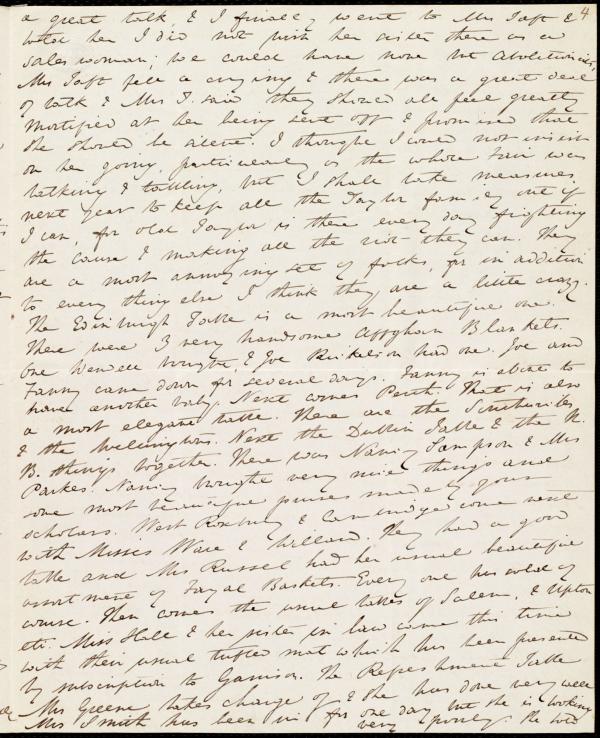 4
a great talk, & I finally went to Mrs Taft &
told her I did not wish her sister there as a
sales woman; we could have none but Abolitionists,
Mrs Taft fell a crying & there was a great deal
of talk & Mrs T. said they should all feel greatly
mortified at her being sent off & promised that
she should be silent. I thought I would not insist
on her going, particularly as the whole Fair was
talking & tattling, but I shall take measures
next year to keep all the Taylor family out if
I can, for old Taylor is there every day fighting
the cause & making all the riot they can. They
are a most annoying set of folks, for in addition
to every thing else I think they are a little crazy.
The Edinburgh Table is a most beautiful one.
There were 3 very handsome Affghan Blankets.
One Wendell bought, & Joe Ricketson had one. Joe and
Fanny came down for several days. Fanny is about to
have another baby. Next comes Perth. That is also
a most elegant table. There are the
& the Wellingtons. Next the Dublin Table & the N.
B. things together. There was Nancy Sampson & Mrs
Parkes. Nancy bought very nice things and
some most beautiful purses made by your
scholars. West Roxbury & Cambridge come next
with Misses Ware & Willard. They had a good
table and Mrs Russel had her usual beautiful
assortment of Fayal Baskets. Every one has sold of
course. Then comes the usual tables of Salem, & Upton
etc. Miss Hall & her sister in law came this time
with their usual tufted mat which has been presented
by subscription to Garrison. The Refreshment Table
Mrs Greene takes charge of & she has done very well
Mrs Smith has been in for one day but she is looking
very poorly. She told